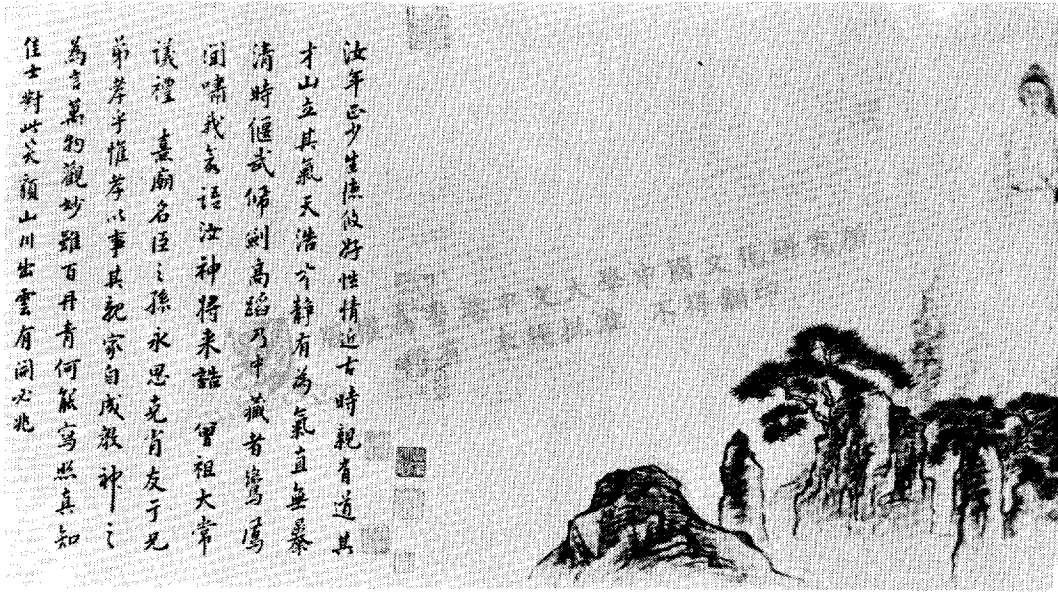 汝年正少生應攸好性情近古時親有道其
才山立其氣天浩兮靜有為氣直無暴
清時偃武倚劍高蹈乃中藏者鸞鳳
間嘯我言語汝神將来誥 曾祖大常
議禮 熹廟名臣之孫永思克肖友于兄
弟孝乎惟孝以事其親家自成教神之
為言萬物觀妙雖百丹青何能寫照真知
佳士對此笑頷山川出雲有開必兆
香港中文大學中國文化研究所
未經批准 不得翻印